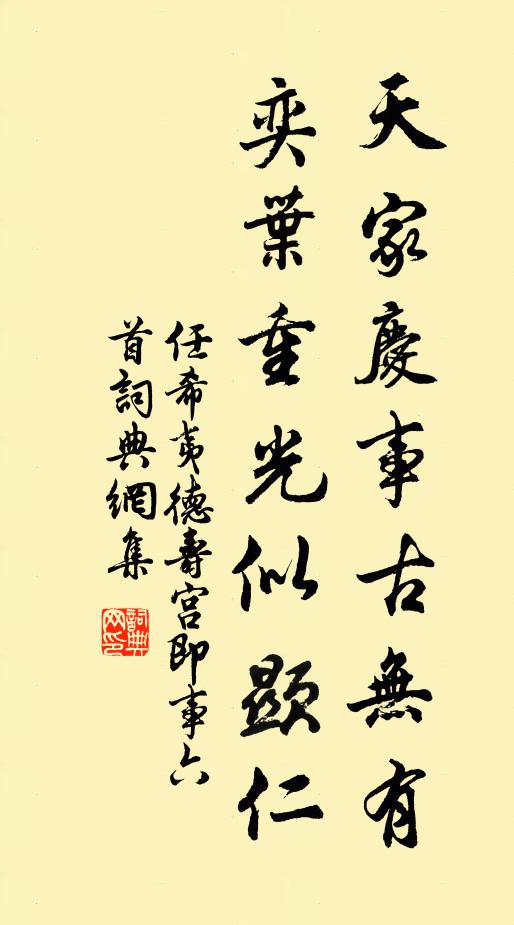 天家慶事古無有
奕葉重光似顯仁
任希夷德壽宮即事六
首詞典網集
詞典
网印